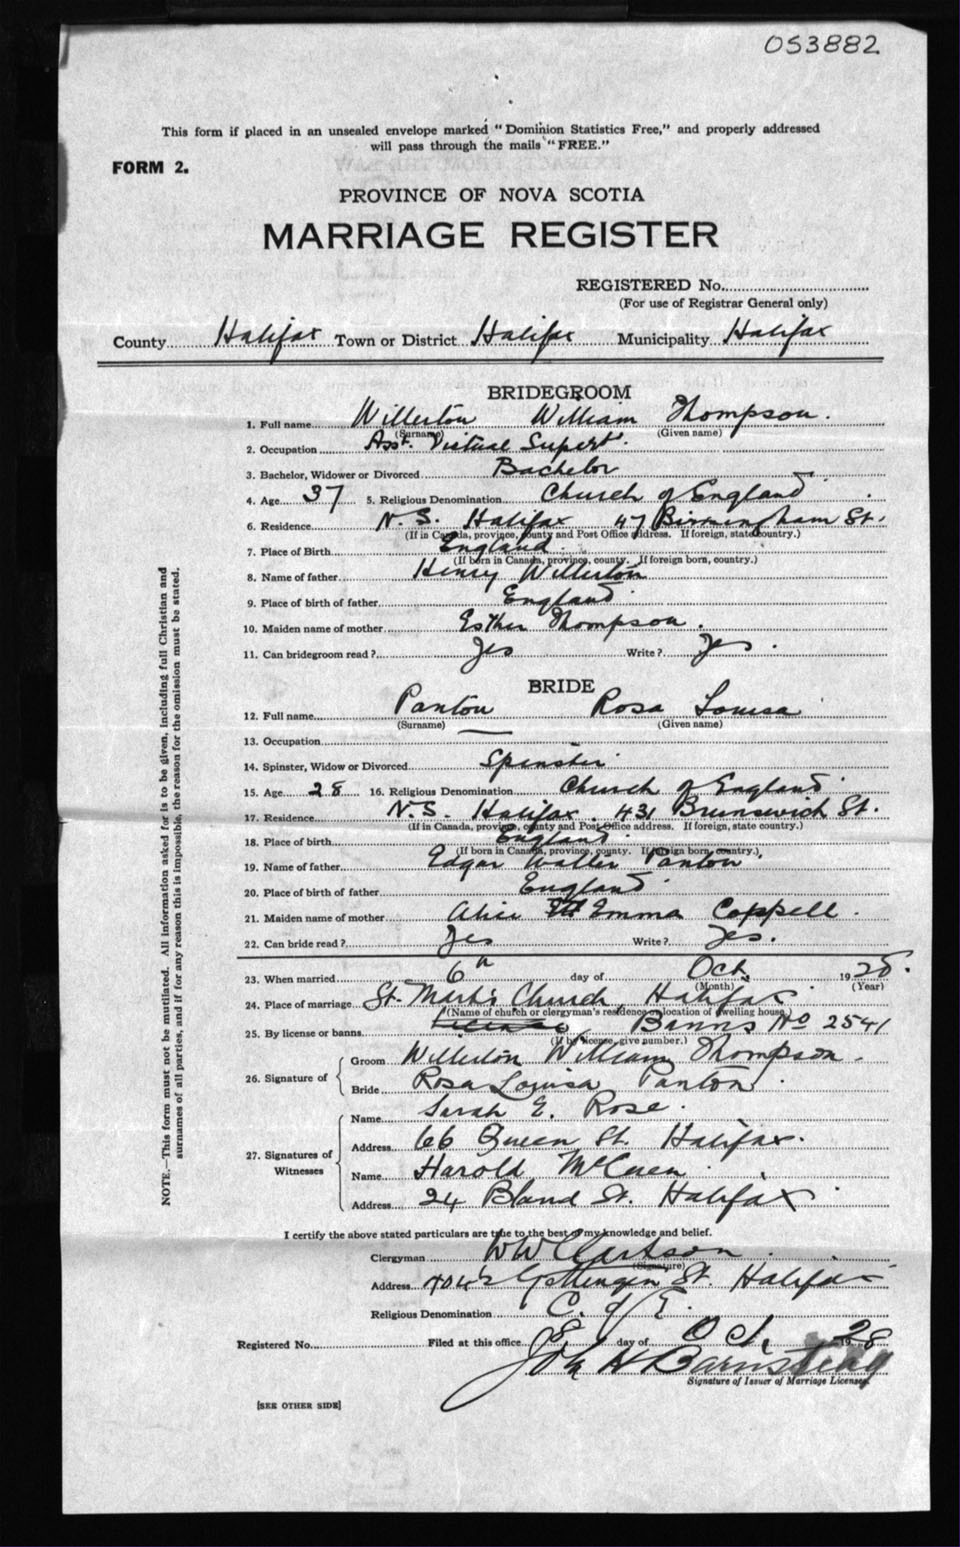 053882
This form if placed in an unsealed envelope marked "Dominion Statistics Free," and properly addressed
will pass through the mails "FREE."
FORM 2.
PROVINCE OF NOVA SCOTIA
MARRIAGE REGISTER
REGISTERED No.
(For use of Registrar General only)
County Halifax Town or District Halifax Municipality Halifax
BRIDEGROOM
1. Full name Willerton William Thompson.
(Surname) (Given name)
2. Occupation Asst. Victual Supert.
3. Bachelor, Widower or Divorced Bachelor
4. Age 37 5. Religious Denomination Church of England
6. Residence N.S. Halifax 47 Birmingham St.
(If in Canada, province, county and Post Office address. If foreign, state country.)
7. Place of Birth England
(If born in Canada, province, county. If foreign born, country.)
8. Name of father Henry Willerton
9. Place of birth of father England
10. Maiden name of mother Esther Thompson.
11. Can bridegroom read? Yes Write? Yes.
BRIDE
12. Full name Panton Rosa Louisa
(Surname) (Given name)
13. Occupation
14. Spinster, Widow or Divorced Spinster
15. Age 28 16. Religious Denomination Church of England
17. Residence N.S. Halifax. 431 Brunswick St.
(If in Canada, province, county and Post Office address. If foreign, state country.)
18. Place of birth England.
(If born in Canada, province, county. If foreign born, country.)
19. Name of father Edgar Walter Panton
20. Place of birth of father England
21. Maiden name of mother Alice Emma Coppell.
22. Can bride read? Yes Write? Yes.
23. When married 6th day of Oct. 1928.
(Month) (Year)
24. Place of marriage St. Mark's Church, Halifax
(Name of church or clergyman's residence or location of dwelling house)
25. By license or banns Banns No 2541
(If by license, give number.)
26. Signature of Groom Willerton William Thompson.
Bride Rosa Louisa Panton.
27. Signatures of Witnesses
Name Sarah E. Rose.
Address 66 Queen St. Halifax.
Name Harold
Address 24 Bland St. Halifax
I certify the above stated particulars are true to the best of my knowledge and belief.
Clergyman WW Clarkson
(Signature)
Address Gottingen St. Halifax
Religious Denomination C. of E.
Registered No. Filed at this office day of Oct. 1928
Barnstead
Signature of Issuer of Marriage Licenses.
[SEE OTHER SIDE]
NOTE.—This form must not be mutilated. All information asked for is to be given, including full Christian and
surnames of all parties, and if for any reason this is impossible, the reason for the omission must be stated.